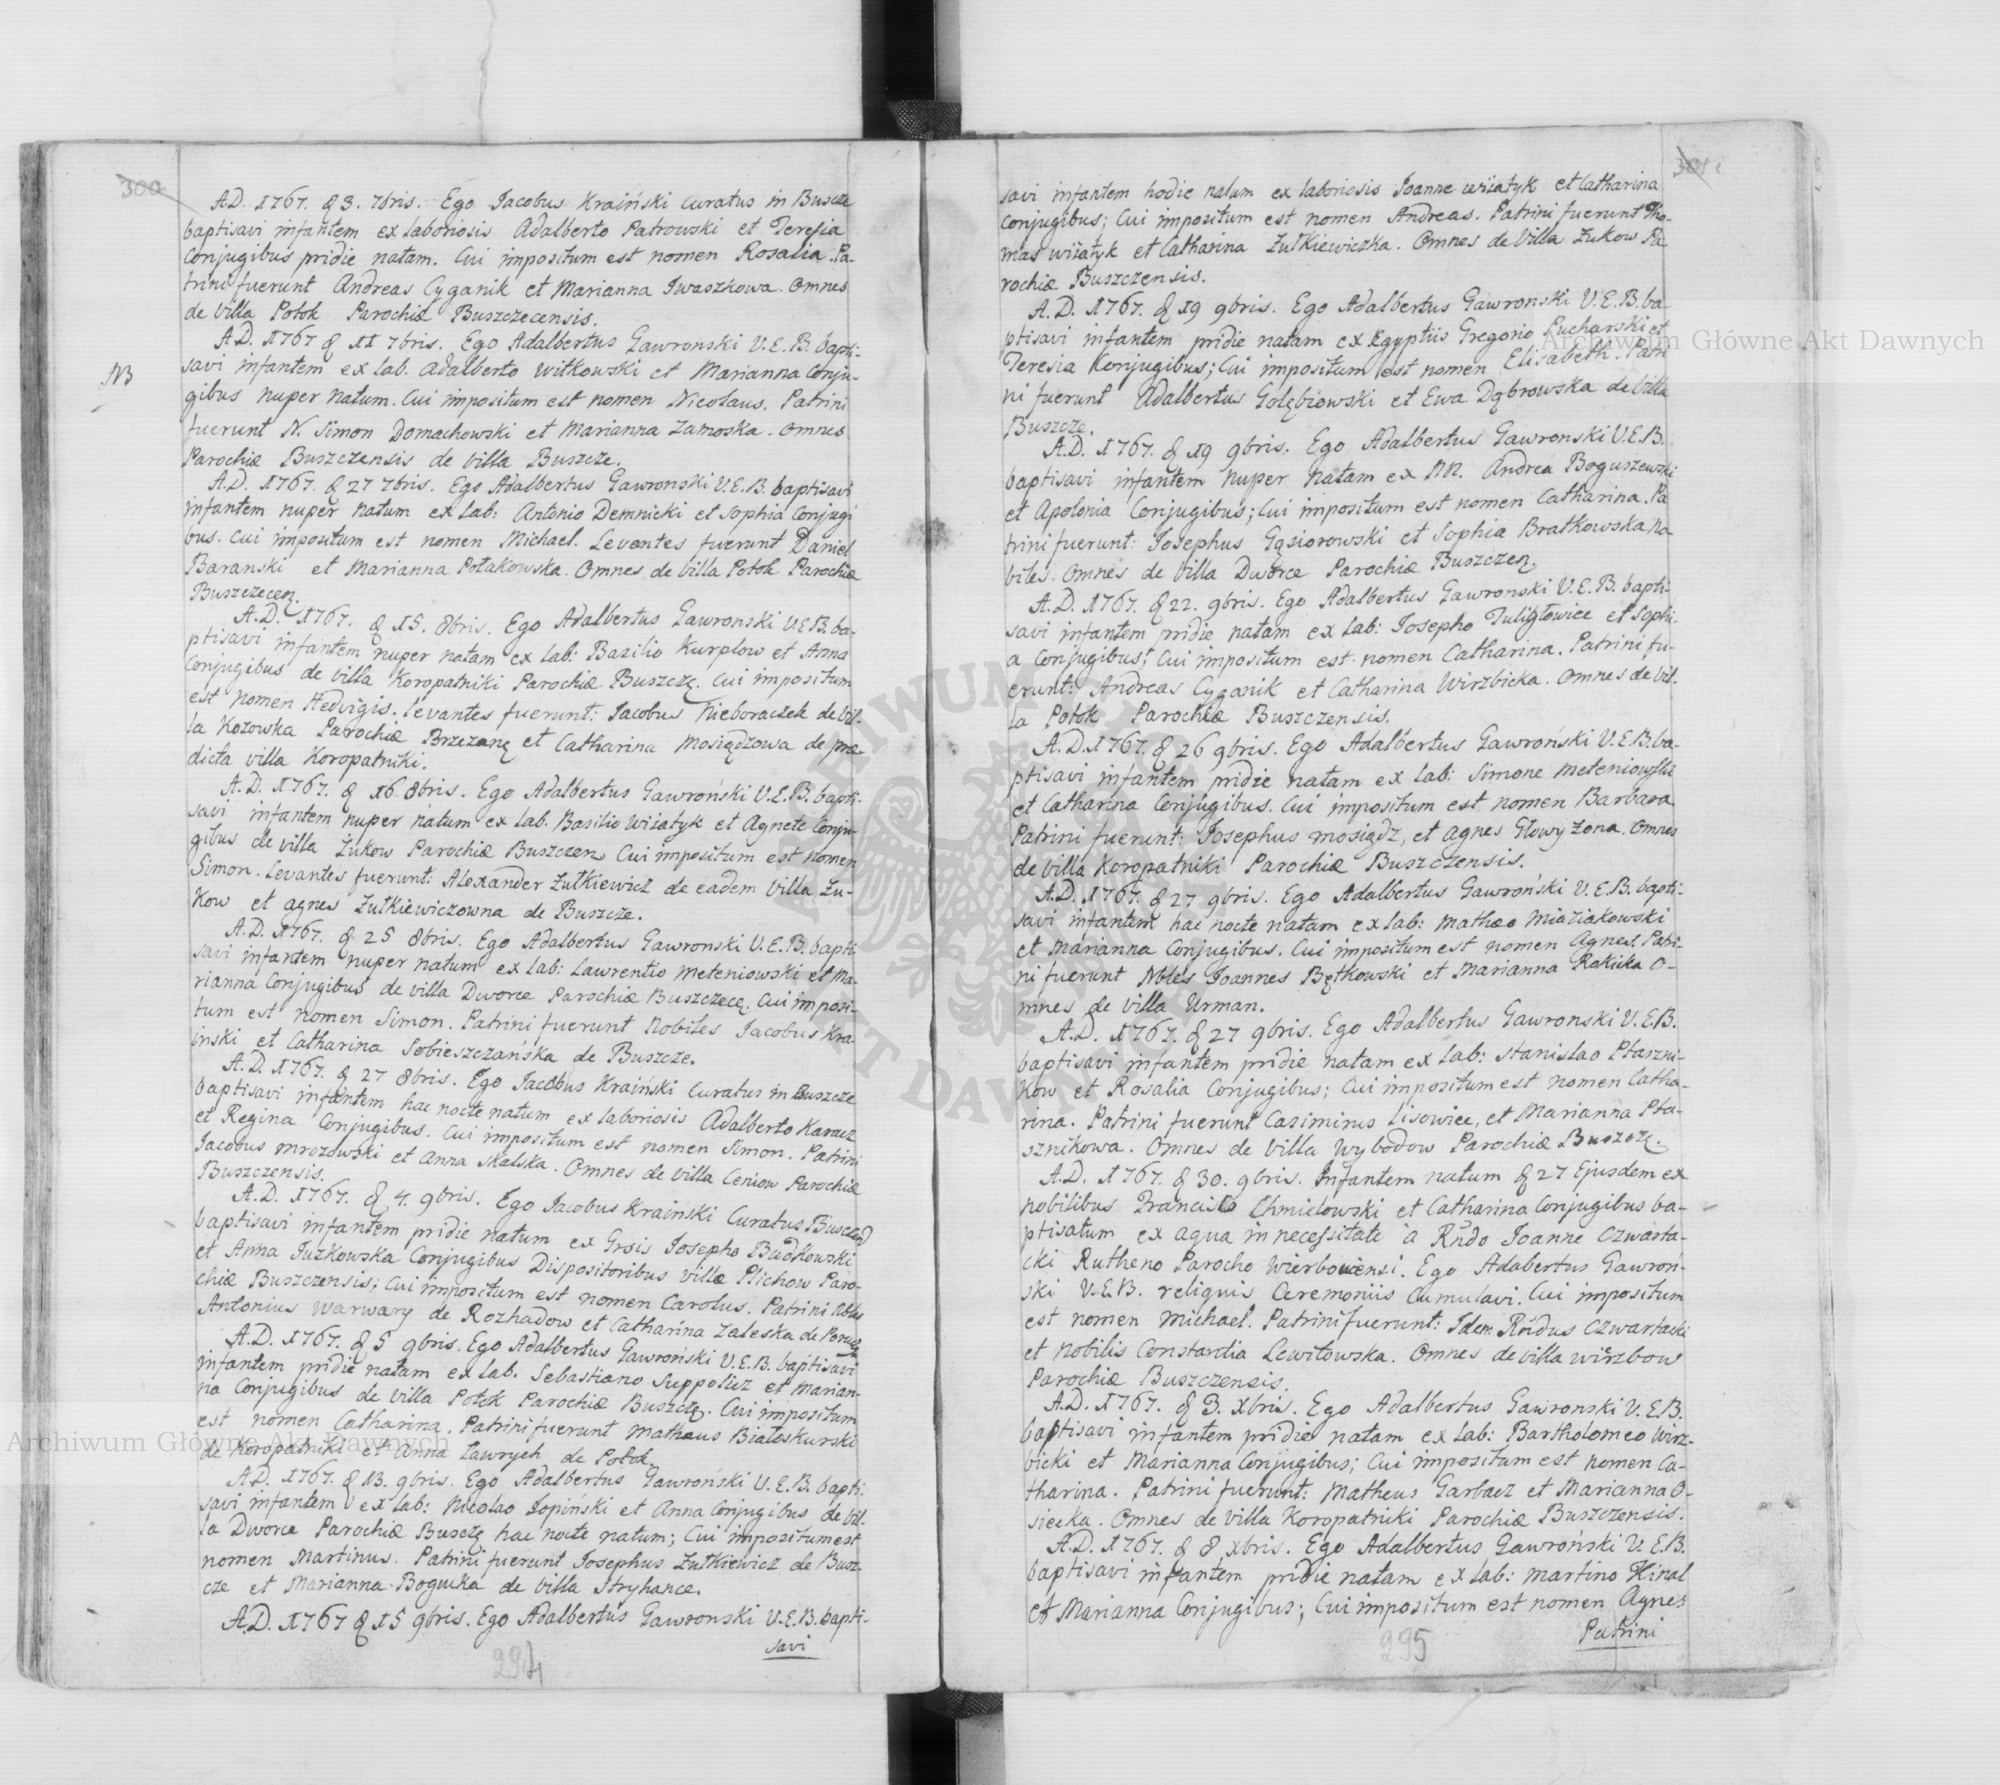 300
A.D. 1767. d 3. 7bris. Ego Jacobus Kraiński curatus in Buszcze
baptisavi infantem ex laboriosis Adalberto Patrowski et Teresia
Conjugibus pridie natam. Cui impositum est nomen Rosalia. Pa-
trini fuerunt Andreas Cyganik et Marianna Iwaszkowa. Omnes
de villa Potok Parochiæ Buszczecensis.
A.D. 1767 d 11 7bris. Ego Adalbertus Gawronski V.E.B. bapti-
NB
savi infantem ex lab. Adalberto Witkowski et Marianna Conju-
gibus nuper natum. Cui impositum est nomen Nicolaus. Patrini
fuerunt N. Simon Domachowski et Marianna Zamoska. Omnes
Parochiæ Buszczensis de villa Buszcze.
A.D. 1767. d 27 7bris. Ego Adalbertus Gawronski V.E.B. baptisavi
infantem nuper natum ex Lab: Antonio Demnicki et Sophia Conjugi
bus. Cui impositum est nomen Michael. Levantes fuerunt Daniel
Baranski et Marianna Polakowska. Omnes de villa Potok Parochiæ
Buszczecen.
A.D. 1767. d 15. 8bris. Ego Adalbertus Gawronski V.E.B. ba-
ptisavi infantem nuper natam ex lab: Bazilio Kurplow et Anna
Conjugibus de villa Koropatniki Parochiæ Buszczę. Cui impositum
est nomen Hedvigis. Levantes fuerunt: Jacobus Nieboraczek de vil-
la Kozowska Parochiæ Brzezanę et Catharina Mosiądzowa de præ
dicta villa Koropatniki.
A.D. 1767. d 16 8bris. Ego Adalbertus Gawroński V.E.B. bapti-
savi infantem nuper natum ex Lab. Basilio Wiżatyk et Agnete Conju-
gibus de villa Zukow Parochiæ Buszczen Cui impositum est nomen
Simon. Levantes fuerunt: Alexander Zulkiewicz de eadem villa Zu-
kow et Agnes Zulkiewiczowna de Buszcze.
A.D. 1767. d 25 8bris. Ego Adalbertus Gawronski V.E.B. bapti-
savi infantem nuper natum ex lab: Lawrentio Meteniowski et Ma-
rianna Conjugibus de villa Dworce Parochiæ Buszczecę. Cui imposi-
tum est nomen Simon. Patrini fuerunt Nobiles Jacobus Kra-
inski et Catharina Sobieszczańska de Buszcze.
A.D. 1767. d 27 8bris. Ego Jacobus Kraiński Curatus in Buszcze
baptisavi infantem hac nocte natum ex laboriosis Adalberto Karacz
et Regina Conjugibus. Cui impositum est nomen Simon. Patrini
Jacobus Mrozowski et Anna Skalska. Omnes de villa Ceniow Parochiæ
Buszczensis.
A.D. 1767. d 4. 9bris. Ego Jacobus Kraiński Curatus
baptisavi infantem pridie natum ex Grsis Josepho Budkowski
et Anna Juzkowska Conjugibus Dispositoribus villæ Plichow Paro-
chiæ Buszczensis; Cui impositum est nomen Carolus. Patrini Nbles
Antonius Warwary de Rozhadow et Catharina Zaleska de
A.D. 1767. d 5 9bris. Ego Adalbertus Gawroński V.E.B. baptisavi
infantem pridie natam ex lab. Sebastiano Suppolicz et Marian-
na Conjugibus de villa Potok Parochiæ Buszczę. Cui impositum
est nomen Catharina. Patrini fuerunt Mathæus Białoskurski
de Koropatniki et Anna Lawrych de Potok.
A.D. 1767. d 13. 9bris. Ego Adalbertus Gawroński V.E.B. bapti-
savi infantem ex lab: Nicolao Łopiński et Anna Conjugibus de vil-
la Dworce Parochiæ Buszczę hac nocte natum; Cui impositum est
nomen Martinus. Patrini fuerunt Josephus Zulkiewicz de Busz-
cze et Marianna Bogucka de villa Stryhance.
A.D. 1767 d 15 9bris. Ego Adalbertus Gawronski V.E.B. bapti-
savi
294
301
savi infantem hodie natum ex laboriosis Joanne Wiżatyk et Catharina
Conjugibus; Cui impositum est nomen Andreas. Patrini fuerunt Tho-
mas Wiżatyk et Catharina Zulkiewiczka. Omnes de villa Zukow Pa
rochiæ Buszczensis.
A.D. 1767. d 19 9bris. Ego Adalbertus Gawronski V.E.B. ba-
ptisavi infantem pridie natam ex Egyptiis Gregorio Pucharski et
Teresia Konjugibus; Cui impositum est nomen Elisabeth. Patri
ni fuerunt Adalbertus Golębiowski et Ewa Dąbrowska de villa
Buszcze.
A.D. 1767. d 19 9bris. Ego Adalbertus Gawronski V.E.B.
baptisavi infantem nuper natam ex NN. Andrea Boguszewski
et Apolonia Conjugibus; Cui impositum est nomen Catharina. Pa
trini fuerunt: Josephus Gąsiorowski et Sophia Bratkowska No-
biles. Omnes de villa Dworce Parochiæ Buszczen.
A.D. 1767. d 22. 9bris. Ego Adalbertus Gawronski V.E.B. bapti-
savi infantem pridie natam ex lab: Josepho Tuliglowicz et Sophi-
a Conjugibus; Cui impositum est nomen Catharina. Patrini fu-
erunt: Andreas Cyganik et Catharina Wirzbicka. Omnes de vil-
la Potok Parochiæ Buszczensis.
A.D. 1767. d 26 9bris. Ego Adalbertus Gawroński V.E.B. ba-
ptisavi infantem pridie natam ex Lab: Simone Meteniowski
et Catharina Conjugibus. Cui impositum est nomen Barbara.
Patrini fuerunt: Josephus Mosiądz, et Agnes Głowy żona. Omnes
de villa Koropatniki Parochiæ Buszczensis.
A.D. 1767. d 27 9bris. Ego Adalbertus Gawroński V.E.B. bapti-
savi infantem hac nocte natam ex lab: Mathæo Miaziakowski
et Marianna Conjugibus. Cui impositum est nomen Agnes. Patri-
ni fuerunt Nbles Joannes Bętkowski et Marianna Rakicka O-
mnes de villa Urman.
A.D. 1767. d 27 9bris. Ego Adalbertus Gawronski V.E.B.
baptisavi infantem pridie natam ex Lab: Stanislao Ptaszni-
kow et Rosalia Conjugibus; Cui impositum est nomen Catha-
rina. Patrini fuerunt Casimirus Lisowicz, et Marianna Pta-
sznikowa. Omnes de villa Wybodow Parochiæ Buszczę.
A.D. 1767. d 30. 9bris. Infantem natum d 27 Ejusdem ex
nobilibus Francisco Chmielowski et Catharina Conjugibus ba-
ptisatum ex aqua in necessitate à Rndo Joanne Czwarta-
cki Rutheno Parocho Wierbowiensi. Ego Adabertus Gawroń-
ski V.E.B. reliquis Ceremoniis Cumulavi. Cui impositum
est nomen Michael. Patrini fuerunt: Idem Rndus Czwartacki
et Nobilis Constantia Lewitowska. Omnes de villa Wirzbow
Parochiæ Buszczensis.
A.D. 1767. d 3. Xbris. Ego Adalbertus Gawronski V.E.B.
baptisavi infantem pridie natam ex Lab: Bartholomeo Wirz-
bicki et Marianna Conjugibus; Cui impositum est nomen Ca-
tharina. Patrini fuerunt: Matheus Garbacz et Marianna O-
siecka. Omnes de villa Koropatniki Parochiæ Buszczensis.
A.D. 1767. d 8 xbris. Ego Adalbertus Gawroński V.E.B.
baptisavi infantem pridie natam ex Lab: Martino Hinal
et Marianna Conjugibus; Cui impositum est nomen Agnes
Patrini
295
Archiwum Główne Akt Dawnych
Archiwum Główne Akt Dawnych